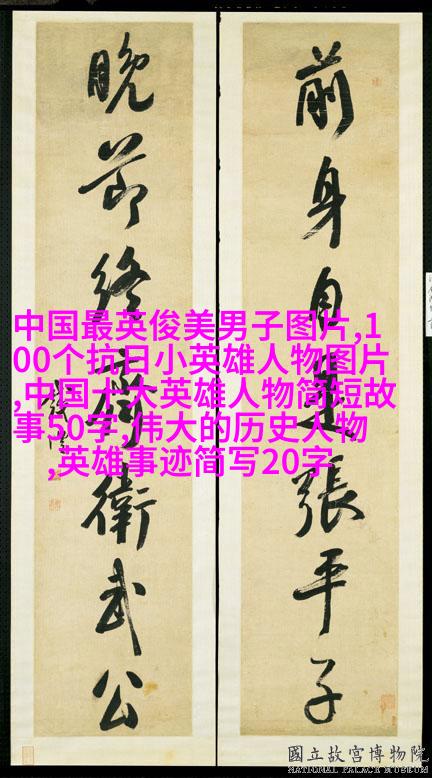 前身自是張平子
晚節終齊衛武公
中国最英俊美男子图片,1
00个抗日小英雄人物图片
,中国十大英雄人物简短故
事50字,伟大的历史人物
,英雄事迹简写20字
國立故宮博物院
NATIONAL PALACE MUSEUM